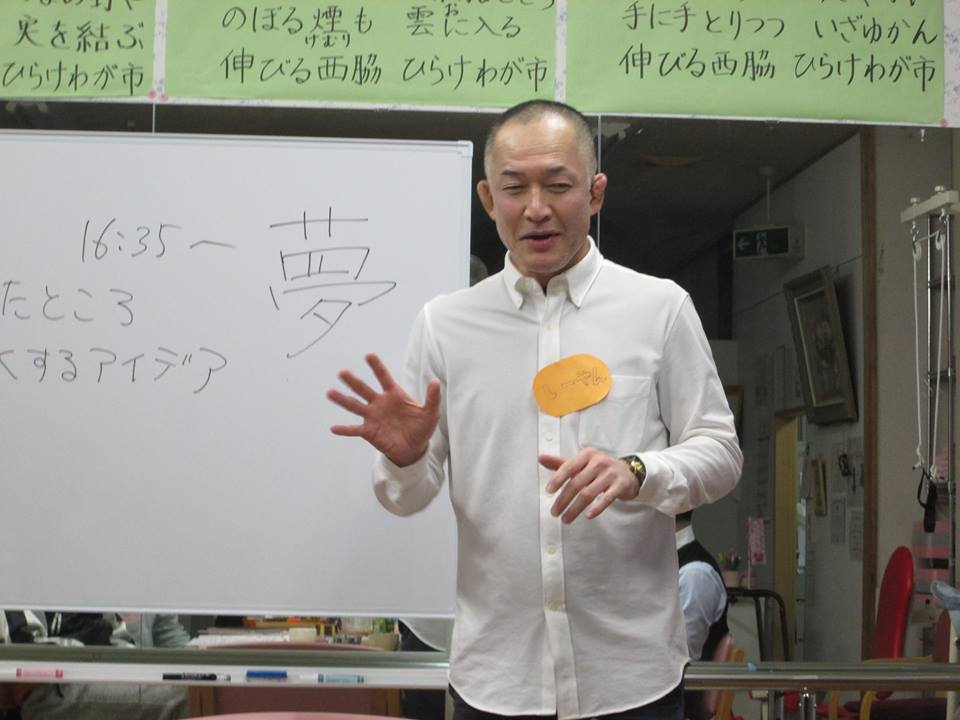 実を結ぶ
ひらけわが市
のぼる煙も 雲に入る
けむり
伸びる西脇 ひらけわが市
手に手とりつつ いざゆかん
伸びる西脇 ひらけわが市
16:35〜 夢
たところ
くするアイデア